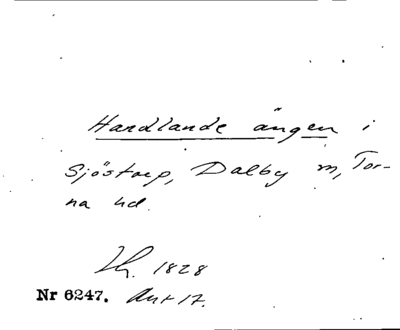 Handlande ängen i
Sjöstorp, Dalby m, Tor-
na hd.
1828
Nr 6247. Ant 17.